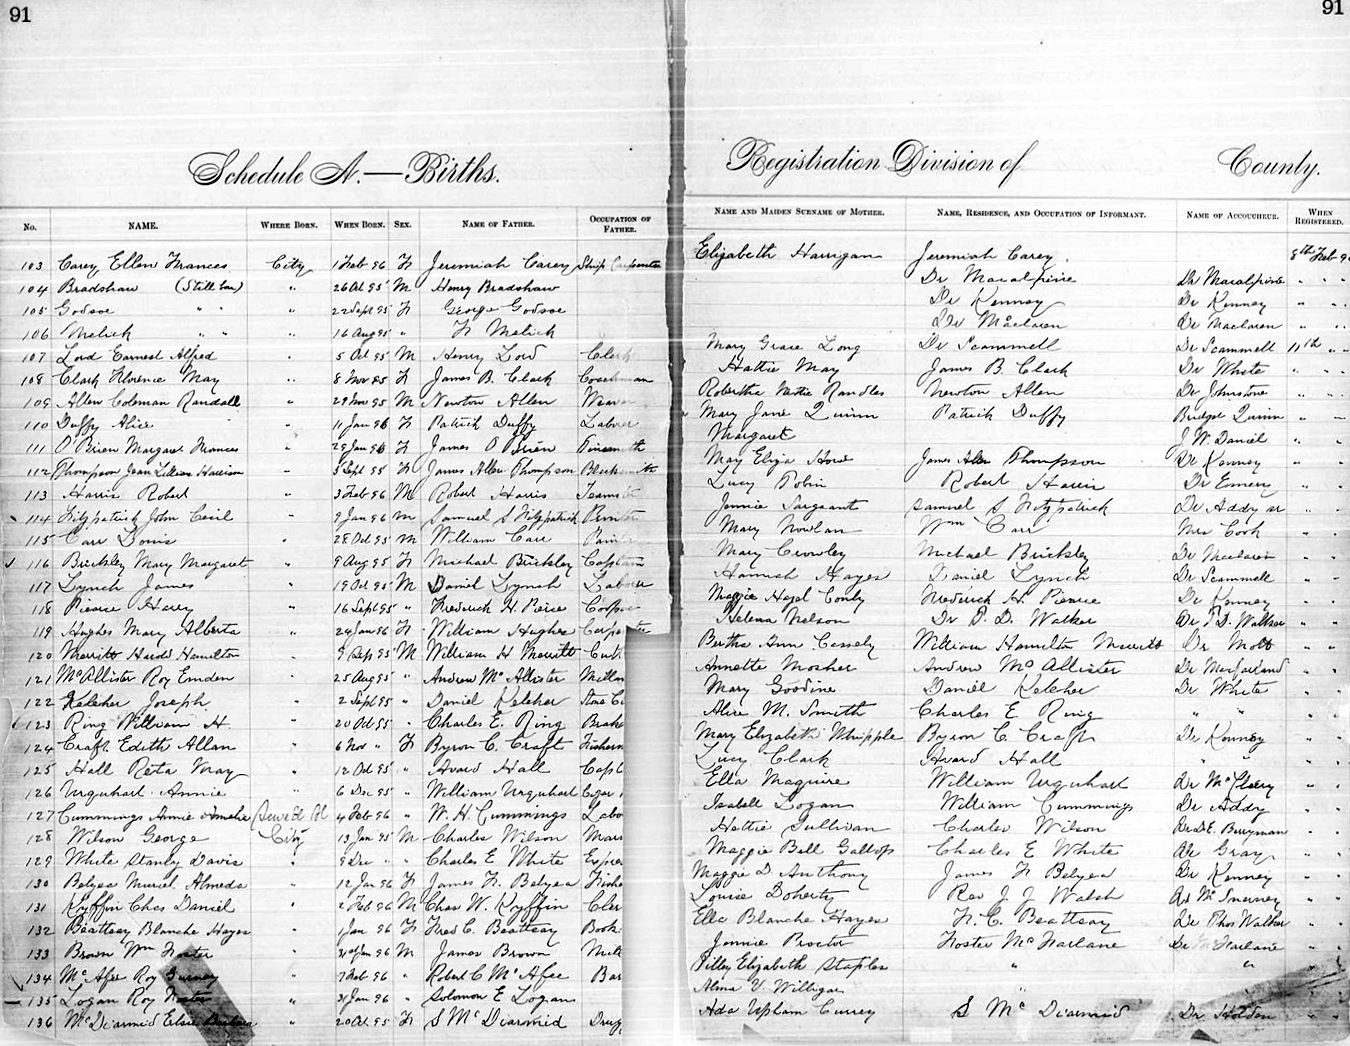 91
Schedule A.—Births.
No. NAME. WHERE BORN. WHEN BORN. SEX. NAME OF FATHER. OCCUPATION OF FATHER.
103 Carey Ellen Frances City 1 Feb 96 F Jeremiah Carey Ship Carpenter
104 Bradshaw (Still born) " 26 Oct 95 M Henry Bradshaw
105 Godsoe " " " 22 Sept 95 F George Godsoe
106 Melick " " " 16 Aug 95 " F Melick
107 Lord Earnest Alfred " 5 Oct 95 M Henry Lord Clerk
108 Clark Florence May " 8 Nov 95 F James B. Clark Coachman
109 Allen Coleman Randall " 29 Nov 95 M Newton Allen Weaver
110 Duffy Alice " 11 Jan 96 F Patrick Duffy Laborer
111 O'Brien Margaret Frances " 29 Jan 96 F James O'Brien Tinsmith
112 Thompson Jean Lillian Harrison " 5 Sept 95 F James Allen Thompson Blacksmith
113 Harris Robert " 3 Feb 96 M Robert Harris Teamster
114 Fitzpatrick John Cecil " 9 Jan 96 M Samuel S Fitzpatrick
115 Carr " 28 Oct 95 M William Carr
116 Brickley Mary Margaret " 9 Aug 95 F Michael Brickley Captain
117 Lynch James " 19 Oct 95 M Daniel Lynch Laborer
118 Pierce Harry " 16 Sept 95 " Frederick H. Pierce Cooper
119 Hughes Mary Alberta " 24 Jan 96 F William Hughes Carpenter
120 Merritt Harold Hamilton " 9 Sep 95 M William H Merritt
121 McAllister Roy Emden " 25 Aug 95 " Andrew McAllister
122 Kelcher Joseph " 2 Sept 95 " Daniel Kelcher Stone
123 Ring William H. " 20 Oct 95 " Charles E. Ring Brake
124 Craft Edith Allan " 6 Nov " F Byron C. Craft Fisherm
125 Hall Reta May " 12 Oct 95 " Avard Hall Capt
126 Urquhart Annie " 6 Dec 95 " William Urquhart Cigar
127 Cummings Annie Amelia 4 Feb 96 " W. H. Cummings Labo
128 Wilson George City 13 Jan 95 M Charles Wilson
129 White Stanly Davis " 9 Dec " " Charles E White Expres
130 Belyea Muriel Almeda " 12 Jan 96 F James F. Belyea Fishe
131 Kyffin Chas Daniel " 2 Feb 96 M Chas W. Kyffin Cler
132 Beatteay Blanche Hayes " 1 Jan 96 F Fred C. Beatteay Book
133 Brown Wm Foster " Jan 96 M James Brown
134 McAfee Roy Burney " 7 Feb 96 " Robert C McAfee Bar
135 Logan Roy Foster " Jan 96 " Solomon E Logan
136 McDiarmid Elsie Barbara " 20 Oct 95 F S McDiarmid Drug
91
Registration Division of County.
NAME AND MAIDEN SURNAME OF MOTHER. NAME, RESIDENCE, AND OCCUPATION OF INFORMANT. NAME OF ACCOUCHEUR. WHEN REGISTERED.
Elizabeth Harrigan Jeremiah Carey 8th Feb 96
Dr Macalpine Dr Macalpine " " "
Dr Kenney Dr Kenney " " "
Dr Maclaren Dr Maclaren " " "
Mary Grace Long Dr Scammell Dr Scammell 11th " "
Hattie May James B. Clark Dr White " " "
Robertha Mertie Randles Newton Allen Dr Johnstone " "
Mary Jane Quinn Patrick Duffy Bridget Quinn " "
Margaret J. W. Daniel " "
Mary Eliza Howe James Allen Thompson Dr Kenney " "
Lucy Robin Robert Harris Dr Emery " "
Jennie Sargeant Samuel S Fitzpatrick Dr Addy sr " "
Mary Nowlan Wm Carr Mrs Cook " "
Mary Crowley Michael Brickley Dr Maclaren " "
Hannah Hayes Daniel Lynch Dr Scammell " "
Maggie Hazel Conly Frederick H. Pierce Dr Kenney " "
Helena Nelson Dr T. D. Walker Dr T. D. Walker " "
Bertha Ann Cassely William Hamilton Merritt Dr Mott " "
Annette Mosher Andrew McAllister Dr MacFarland " "
Mary Goodine Daniel Kelcher Dr White " "
Alice M. Smith Charles E Ring " " " "
Mary Elizabeth Whipple Byron C Craft Dr Kenney " "
Lucy Clark Avard Hall " " " "
Ella Maguire William Urquhart Dr McCleery " "
Isabell Logan William Cummings Dr Addy " "
Hattie Sullivan Charles Wilson Dr D. E. Berryman " "
Maggie Bell Gallop Charles E White Dr Gray " "
Maggie D Anthony James F Belyea Dr Kenney " "
Louise Doherty Rev J J Walsh Dr McInerney " "
Ella Blanche Hayes F. C. Beatteay Dr Thos Walker " "
Jennie Proctor Foster McFarlane Dr McFarlane " "
Tilley Elizabeth Staples " " " "
Alma V. Willigar " "
Ada Upham Currey S McDiarmid Dr Holden " "